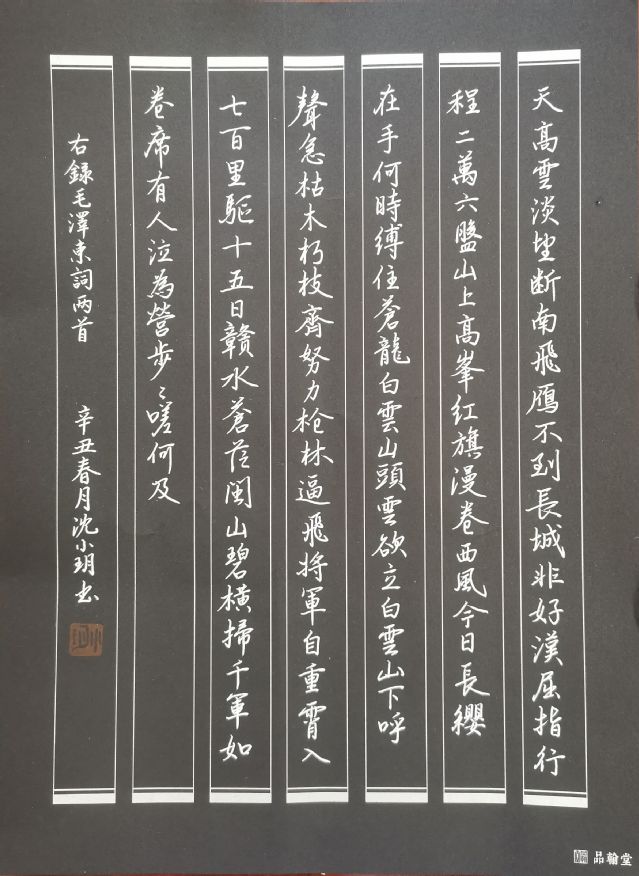 天高雲淡望断南飛鴈不到長城非好漢屈指行
程二萬六盤山上高峯紅旗漫卷西風今日長纓
在手何時縛住蒼龍白雲山頭雲欲立白雲山下呼
聲急枯木朽枝齊努力枪林逼飛將軍自重霄入
七百里驅十五日赣水蒼茫闽山碧横掃千軍如
卷席有人泣為營步〻嗟何及
右録毛澤東詞两首
辛丑春月沈小玥书
品翰堂